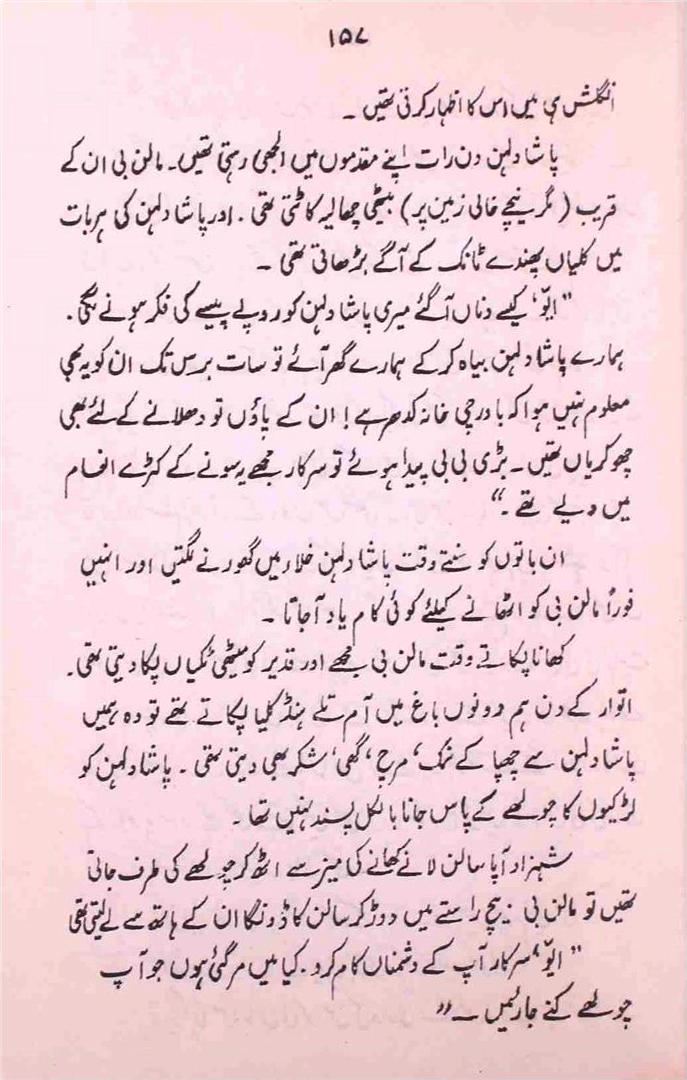 ۱۵۷
انگلش ہی میں اس کا اظہار کرتی تھیں ۔
پاشا دلہن دن رات اپنے مقدموں میں الجھی رہتی تھیں۔ مالن بی ان کے
قریب (مگر نیچے خالی زمین پر) بیٹھی چھالیہ کاٹتی تھی ۔ اور پاشا دلہن کی ہر بات
میں کلیاں پھندے ٹانک کے آگے بڑھاتی تھی ۔
"ایّو، کیسے دناں آگئے میری پاشا دلہن کو روپے پیسے کی فکر ہونے لگی ۔
ہمارے پاشا دلہن بیاہ کر کے ہمارے گھر آئے تو سات برس تک ان کو یہ بھی
معلوم نہیں ہوا کہ باورچی خانہ کدھر ہے! ان کے پاؤں تو دھلانے کے لئے بھی
چھوکریاں تھیں۔ بڑی بی بی پیدا ہوئے تو سرکار مجھے یہ سونے کے کڑے انعام
میں دیے تھے ۔"
ان باتوں کو سنتے وقت پاشا دلہن خلاء میں گھورنے لگتیں اور انہیں
فوراً مالن بی کو اٹھانے کیلئے کوئی کام یاد آجاتا ۔
کھانا پکاتے وقت مالن بی مجھے اور قدیر کو میٹھی ٹکیاں پکا دیتی تھی۔
اتوار کے دن ہم دونوں باغ میں آم تلے ہنڈکلیا پکاتے تھے تو وہ ہمیں
پاشا دلہن سے چھپا کے نمک، مرچ، گھی، شکر بھی دیتی تھی ۔ پاشا دلہن کو
لڑکیوں کا چولھے کے پاس جانا بالکل پسند نہیں تھا ۔
شہزاد آپا سالن لانے کھانے کی میز سے اٹھ کر چولھے کی طرف جاتی
تھیں تو مالن بی بیچ راستے میں دوڑ کر سالن کا ڈونگا ان کے ہاتھ سے لے لیتی تھی
"ایّو، سرکار آپ کے دشمناں کام کرو۔ کیا میں مر گئی ہوں جو آپ
چولھے کنے جارئیں ۔"